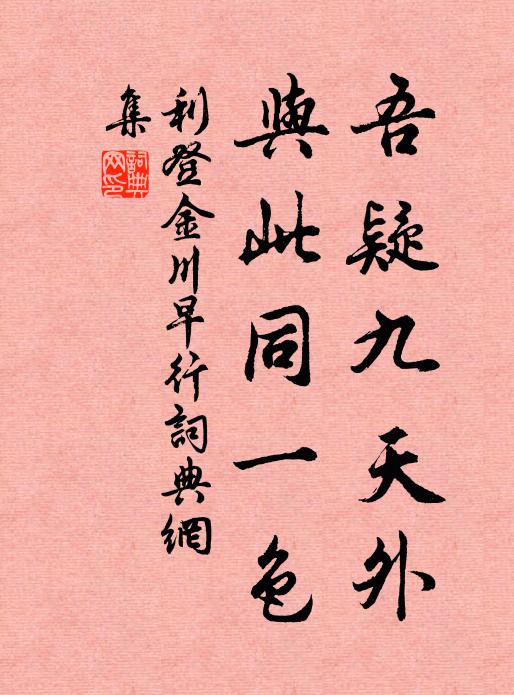 吾疑九天外
與此同一色
利登金川早行詞典網
集
詞典
网印